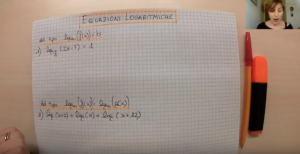 EQUAZIONI LOGARITMICHE
del tipo log f(x) = b
1) log (2x-7) = 1
del tipo log f(x) = log g(x)
2) log (x+2) + log (x) = log (x+12)